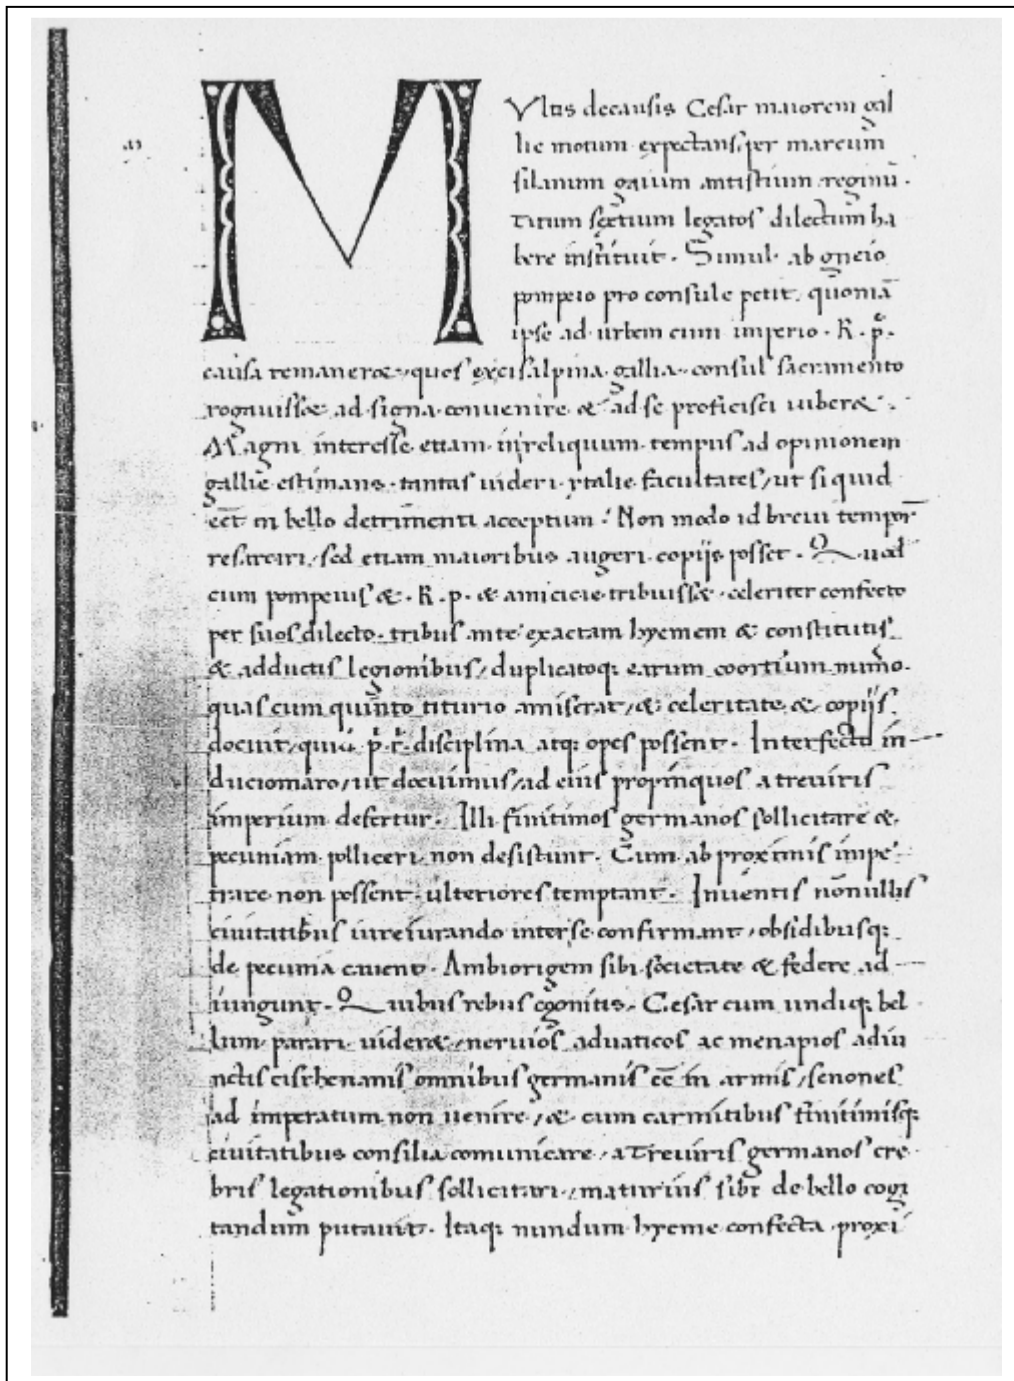 M Vltis decausis Cesar maiorem gal
lie motum expectans. per marcum
silanum gaium antistium reginū.
Titum sextium legatos dilectum ha
bere instituit. Simul ab gneio
pompeio pro consule petit. quoniā
ipse ad urbem cum imperio. R. p.
causa remaner&. quos ex cisalpina gallia. consul sacramento
rogauiss& ad signa conuenire & ad se proficisci iuber&.
Magni interesse etiam in reliquum tempus ad opinionem
gallie estimans. tantas uideri ytalie facultates, ut si quid
eēt in bello detrimenti acceptum. Non modo id breui tempor
resarciri, sed etiam maioribus augeri copijs posset. Quod
cum pompeius &. R. p. & amicicie tribuiss&. celeriter confecto
per suos dilecto. tribus ante exactam hyemem & constitutis
& adductis legionibus, duplicatoq; earum coortium num̄o.
quas cum quinto titurio amiserat, & celeritate & copijs
docuit, quid p. r. disciplina atq; opes possent. Interfecto in
duciomaro, ut docuimus, ad eius propinquos a treuiris
imperium defertur. Illi finitimos germanos sollicitare &
pecuniam polliceri non desistunt. Cum ab proximis impe
trare non possent. ulteriores temptant. Inuentis nōnullis
ciuitatibus iureiurando inter se confirmant, obsidibusq;
de pecunia cauent. Ambiorigem sibi societate & federe ad
iungunt. Quibus rebus cognitis. Cesar cum undiq; bel
lum parari uider&, neruios aduaticos ac menapios adiu
nctis cisrhenanis omnibus germanis eē in armis, senones
ad imperatum non uenire, & cum carnutibus finitimisq;
ciuitatibus consilia comunicare, a Treuiris germanos cre
bris legationibus sollicitari, maturius sibi de bello cogi
tandum putauit. Itaq; nundum hyeme confecta proxi